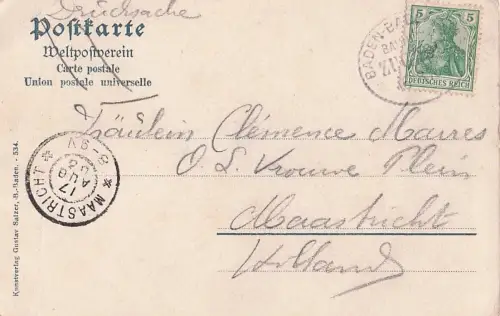 Drucksache
Postkarte
Weltpostverein
Carte postale
Union postale universelle
5 5
DEUTSCHES REICH
BADEN-BA
Fräulein Clémence Marres
O. L. Vrouwe Plein
Maastricht
Holland
MAASTRICHT
17
AUG
8-9V
Kunstverlag Gustav Salzer, B.-Baden. - 534.